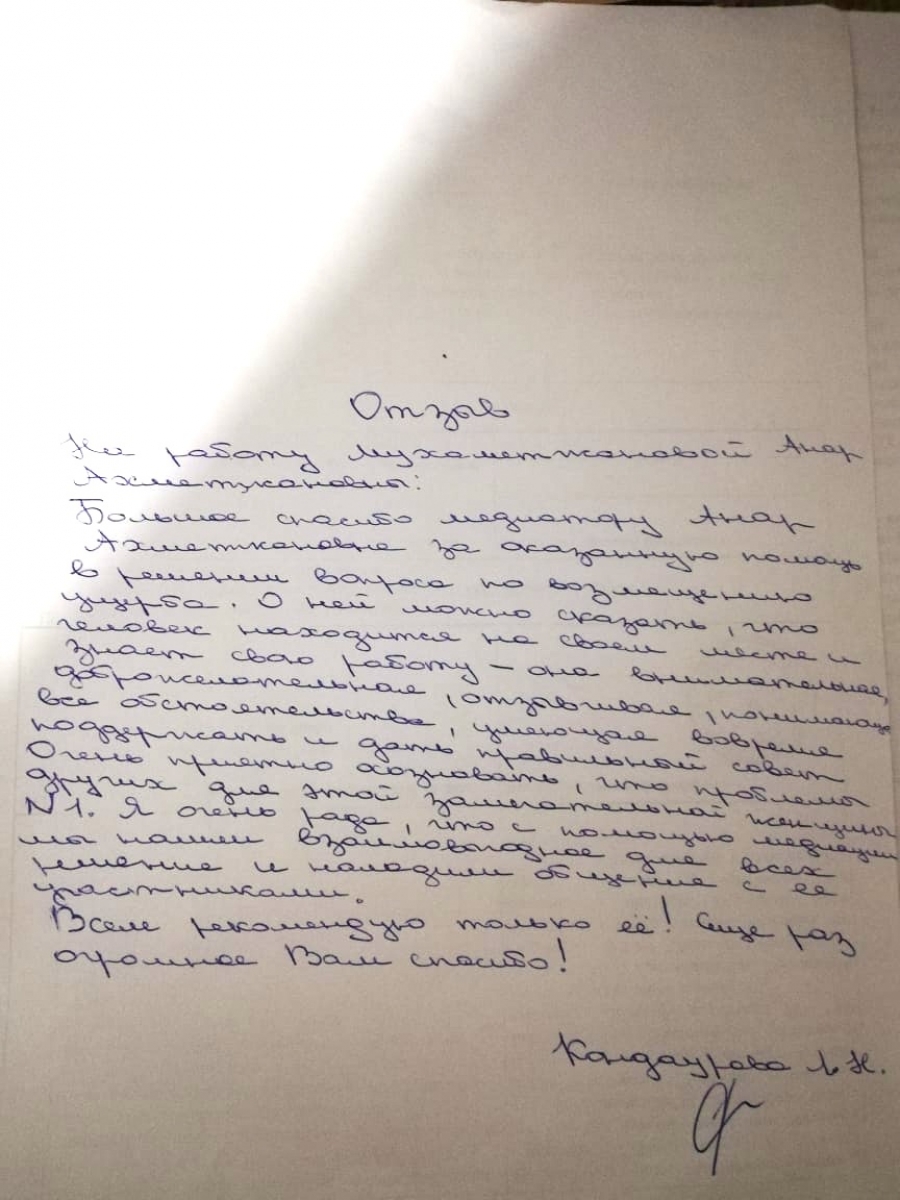 Отзыв
На работу Мухаметжановой Анар
Ахметжановны:
Большое спасибо медиатору Анар
Ахметжановне за оказанную помощь
в решении вопроса по возмещению
ущерба. О ней можно сказать, что
человек находится на своем месте и
знает свою работу – она внимательная,
доброжелательная, отзывчивая, понимающая
все обстоятельства, умеющая вовремя
поддержать и дать правильный совет
Очень приятно осознавать, что проблемы
других для этой замечательной женщины
N1. Я очень рада, что с помощью медиации
мы нашли взаимовыгодное для всех
решение и наладили общение с ее
участниками.
Всем рекомендую только её! Еще раз
огромное Вам спасибо!
Кандаурова Л.Н.